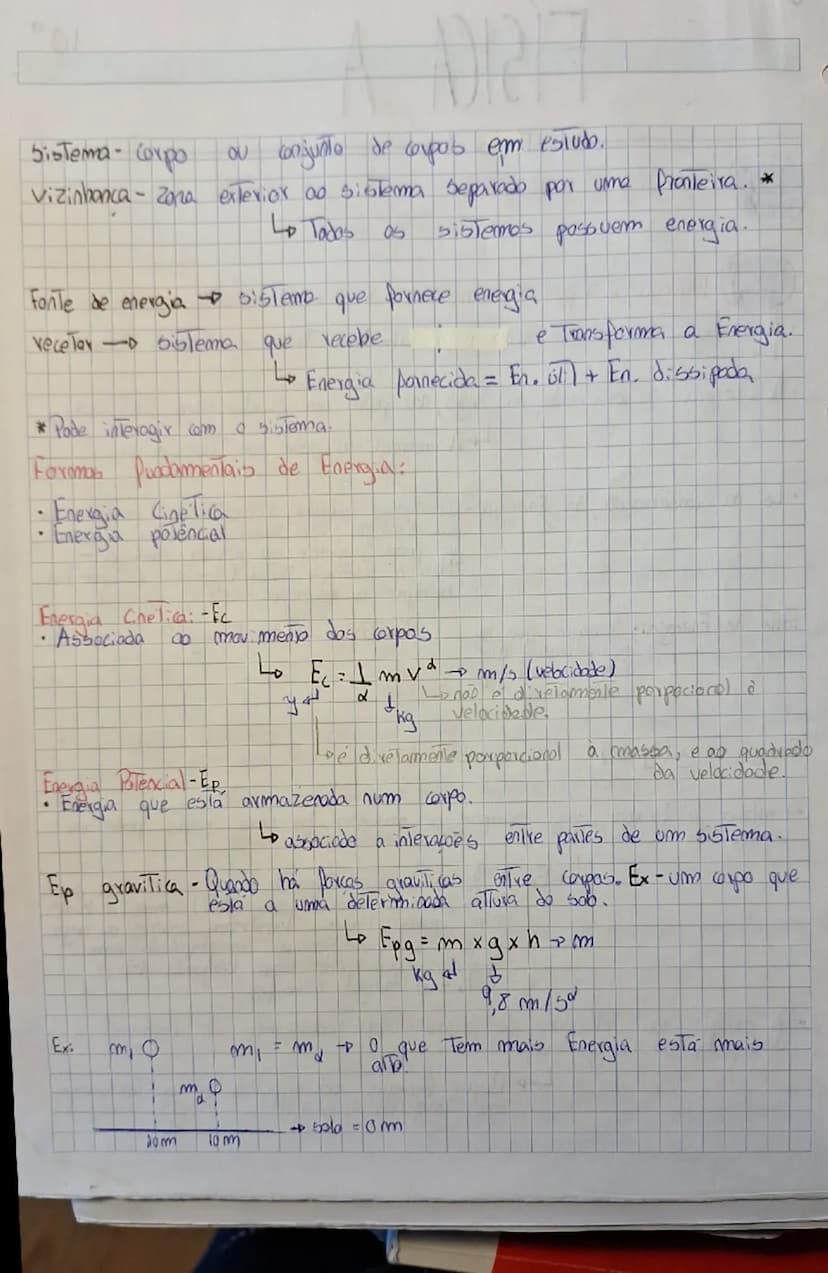 Sistema - corpo ou conjunto de corpos em estudo.
Vizinhança - Zona exterior ao sistema separado por uma fronteira. *
↳ Todos os sistemas possuem energia.
Fonte de energia → sistema que fornece energia
recetor → sistema que recebe e Transforma a Energia.
↳ Energia fornecida = En. útil + En. dissipada
* Pode interagir com o sistema.
Formas fundamentais de Energia:
• Energia Cinética
• Energia potêncial
Energia Cnetica: - Ec
• Associada ao movimento dos corpos
↳ Ec = 1/2 m v² → m/s (velocidade)
J ↲ ↓ kg ↳ não é diretamente porporcional à
velocidade.
↳ é diretamente porporcional à massa, e ao quadrado
da velocidade.
Energia Potencial - Ep
• Energia que está armazenada num corpo.
↳ associada a interações entre partes de um sistema.
Ep gravítica - Quando há forças gravíticas entre corpos. Ex - um corpo que
está a uma determinada altura do solo.
↳ Epg = m x g x h → m
kg ↲ ↓
9,8 m/s²
Ex: m₁ m₁ = m₂ → O que Tem mais Energia está mais
alto!
m₂
→ solo = 0 m
20m 10m